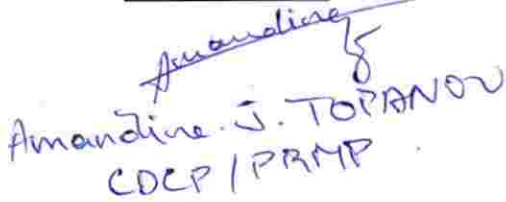 Amandine
Amandine. J. TOPANOU
CDCP/PRMP.